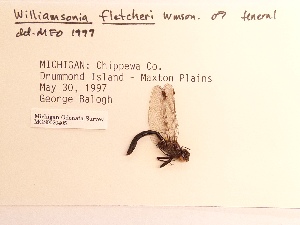 Williamsonia fletcheri Wmson. ♂ teneral
det-MFO 1997
MICHIGAN: Chippewa Co.
Drummond Island - Maxton Plains
May 30, 1997
George Balogh
Michigan Odonata Survey